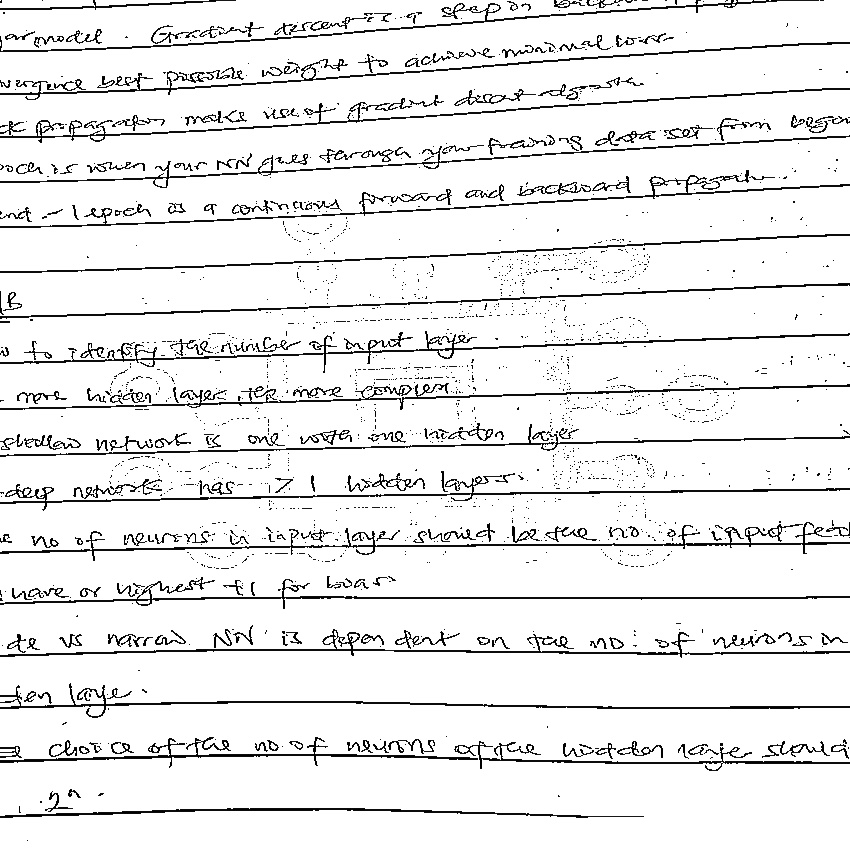 your model. Gradient descent is a step in
vergence best possible weight to achieve minimal loss
ck propagation make use of gradient descent algorithm
poch is when your NN goes through your training data set from began
end - 1 epoch is a continuous forward and backward propagation
NB
w to identify the number of input layer
more hidden layer, the more complex
shallow network is one with one hidden layer
deep network has > 1 hidden layers.
e no of neurons in input layer should be the no. of input feat
have or highest +1 for bias
de vs narrow NN is dependent on the no: of neurons in
den laye.
e choice of the no of neurons of the hidden layer should
2ⁿ.